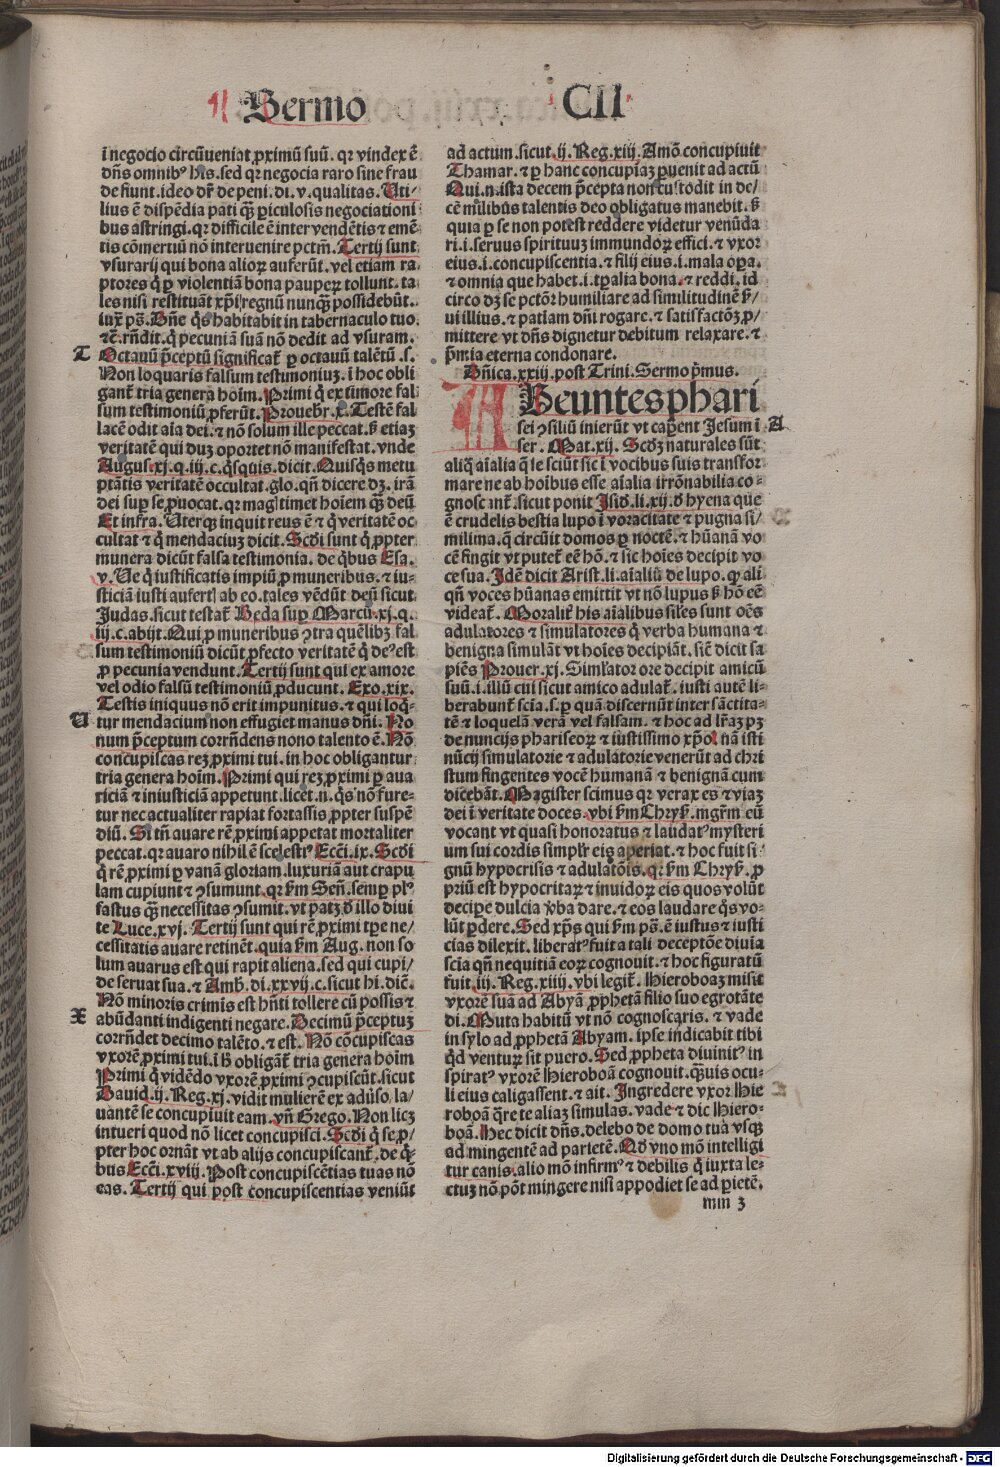 Sermo CII
ī negocio circūueniat ꝓximū suū. qꝛ vindex ē
dn̄s omnibꝰ his. sed qꝛ negocia raro sine frau
de fiunt. ideo dr̄ de peni. di. v. qualitas. Uti⸗
lius ē dispēdia pati qꝫ̄ ꝑiculosis negociationi
bus astringi. qꝛ difficile ē inter vendētis ⁊ emē⸗
tis cōmertiū nō interuenire pctm̄. Tertij sunt
vsurarij qui bona alioꝝ auferūt. vel etiam ra⸗
ptores q̇ ꝑ violentiā bona pauperꝝ tollunt. ta
les nisi restituāt xp̄i regnū nunqꝫ̄ possidebūt.
iux̄ ps̄. Dn̄e q̇s habitabit in tabernaculo tuo.
⁊c̄. rn̄dit. q̇ pecuniā suā nō dedit ad vsuram.
T Octauū p̄ceptū significat̄ ꝑ octauū talētū .s.
Non loquaris falsum testimoniuꝫ. ī hoc obli
gant̄ tria genera hoīm. Primi q̇ ex timore fal
sum testimoniū ꝓferūt. Prouebr̄. x. Testē fal
lacē odit aīa dei. ⁊ nō solum ille peccat. ꝫ̄ etiaꝫ
veritatē qui duꝫ oportet nō manifestat. vnde
Augus. xj. q. iij. c. q̇squis. dicit. Quisq̇s metu
ptātis veritatē occultat .glo. qn̄ dicere dꝫ. irā
dei suꝑ se ꝓuocat. qꝛ mag̃ timet hoīem qꝫ̄ deū
Et infra. Uterqꝫ inquit reus ē ⁊ q̇ veritatē oc
cultat ⁊ q̇ mendaciuꝫ dicit. Scd̄i sunt q̇ ꝓpter
munera dicūt falsa testimonia. de q̇bus Esa.
v. Ue q̇ iustificatis impiū ꝓ muneribus. ⁊ iu⸗
sticiā iusti aufert̄ ab eo. tales vēdūt deū sicut
Judas. sicut testat̄ Beda suꝑ Marcū. xj. q.
iij. c. abijt. Qui ꝓ muneribus ꝯtra quēlibꝫ fal
sum testimoniū dicūt ꝓfecto veritatē q̇ deꝰ est
ꝓ pecunia vendunt. Tertij sunt qui ex amore
vel odio falsū testimoniū ꝓducunt. Exo. xix.
Testis iniquus nō erit impunitus. ⁊ qui loq̇⸗
U tur mendacium non effugiet manus dn̄i. No
num p̄ceptum corrn̄dens nono talento ē. Nō
concupiscas reꝫ ꝓximi tui. in hoc obligantur
tria genera hoīm. Primi qui reꝫ ꝓximi ꝑ aua
riciā ⁊ iniusticiā appetunt. licet. n. q̇s nō fure⸗
tur nec actualiter rapiat fortassis ꝓpter suspē
diū. Si tn̄ auare rē ꝓximi appetat mortaliter
peccat. qꝛ auaro nihil ē scelestiꝰ Ecci. ix. Scd̄i
q̇ rē ꝓximi ꝑ vanā gloriam. luxuriā aut crapu
lam cupiunt ⁊ ꝯsumunt. qꝛ ẜm Sen̄. semꝑ plꝰ
fastus qꝫ̄ necessitas ꝯsumit. vt patꝫ ď illo diui
te Luce. xvj. Tertij sunt qui rē ꝓximi tꝑe ne/
cessitatis auare retinēt. quia ẜm Aug. non so
lum auarus est qui rapit aliena. sed qui cupi/
de seruat sua. ⁊ Amb. di. xxvij. c. sicut hi. dic̄.
Nō minoris crimis est hn̄ti tollere cū possis ⁊
X abūdanti indigenti negare. Decimū p̄ceptuꝫ
corrn̄det decimo talēto. ⁊ est. Nō cōcupiscas
vxorē ꝓximi tui. ī ꝫ̄ obligāt̄ tria genera hoīm
Primi q̇ vidēdo vxorē ꝓximi ꝯcupiscūt. sicut
Dauid. ij. Reg. xj. vidit mulierē ex aduẜo. la/
uantē se concupiuit eam. vn̄ Grego. Non licꝫ
intueri quod nō licet concupisci. Scd̄i q̇ se ꝓ/
pter hoc ornāt vt ab alijs concupiscant̄. de q̇⸗
bus Ecci. xviij. Post concupiscētias tuas nō
eas. Tertij qui post concupiscentias veniūt
ad actum. sicut. ij. Reg. xiij. Amō concupiuit
Thamar. ⁊ ꝑ hanc concupiaꝫ ꝑuenit ad actū
Qui. n. ista decem p̄cepta non custodit in de/
cē milibus talentis deo obligatus manebit. ꝫ̄
quia ꝑ se non potest reddere videtur venūda
ri. i. seruus spirituuꝫ immundoꝝ effici. ⁊ vxor
eius. i. concupiscentia. ⁊ filij eius. i. mala oꝑa.
⁊ omnia que habet. i. tꝑalia bona. ⁊ reddi. id
circo dꝫ se pctōr humiliare ad similitudinē ẜ/
ui illius. ⁊ patiam dn̄i rogare. ⁊ satisfactōꝫ ꝓ/
mittere vt dn̄s dignetur debitum relaxare. ⁊
p̄mia eterna condonare.
Dn̄ica. xxiij. post Trini. Sermo p̄mus.
ABeuntes phari
sei ꝯsiliū inierūt vt caꝑent Jesum ī A
ser. Mat. xij. Scd̄ꝫ naturales sūt
aliq̇ aīalia q̇ le sciūt sic ī vocibus suis transfor
mare ne ab hoibus esse aīalia irrōnabilia co⸗
gnoscant̄. sicut ponit Jsid̄. li. xij. ď hyena que
ē crudelis bestia lupo ī voracitate ⁊ pugna si/
milima. q̇ circuit domos ꝑ noctē. ⁊ hūanā vo
cē fingit vt putet̄ eē hō. ⁊ sic hoīes decipit vo
ce sua. Jdē dicit Arist. li. aīaliū de lupo. ꝙ ali
qn̄ voces hūanas emittit vt nō lupus ꝫ̄ hō eē
videat̄. Moralit̄ his aīalibus sil̄es sunt oēs
adulatores ⁊ simulatores q̇ verba humana ⁊
benigna simulāt vt hoīes decipiāt. sic̄ dicit sa
piēs Prouer. xj. Simlator ore decipit amicū
suū. i. illū cui sicut amico adulat̄. iusti autē li⸗
berabunt̄ scīa. s. ꝑ quā discernūt inter sāctita⸗
tē ⁊ loquelā verā vel falsam. ⁊ hoc ad lr̄aꝫ pꝫ
de nuncijs phariseoꝝ ⁊ iustissimo xp̄o. nā isti
nūcij simulatorie ⁊ adulatorie venerūt ad chri
stum fingentes vocē humanā ⁊ benignā cum
dicebāt. Magister scimus qꝛ verax es ⁊ viaꝫ
dei ī veritate doces. vbi ẜm Chryẜ. mgr̄m eū
vocant vt quasi honoratus ⁊ laudatꝰ mysteri
um sui cordis simplr̄ eis aperiat. ⁊ hoc fuit si⸗
gnū hypocrisis ⁊ adulatōis. qꝛ ẜm Chryẜ. ꝓ
priū est hypocritaꝝ ⁊ inuidoꝝ eis quos volūt
decipe dulcia v̇ba dare. ⁊ eos laudare q̇s vo⸗
lūt ꝑdere. Sed xp̄s qui ẜm ps̄. ē iustus ⁊ iusti
cias dilexit. liberatꝰ fuit a tali deceptōe diuīa
scīa qn̄ nequitiā eoꝝ cognouit. ⁊ hoc figuratū
fuit. iij. Reg. xiiij. vbi legit̄. Hieroboaꝫ misit
vxorē suā ad Abyā ꝓphetā filio suo egrotāte
di. Muta habitū vt nō cognoscaris. ⁊ vade
in sylo ad ꝓphetā Abyam. ipse indicabit tibi
q̇d venturꝰ sit puero. Sed ꝓpheta diuinitꝰ in
spiratꝰ vxorē Hieroboā cognouit. qꝫ̄uis ocu⸗
li eius caligassent. ⁊ ait. Jngredere vxor Hie
roboā q̇re te aliaꝫ simulas. vade ⁊ dic Hiero⸗
boā. Hec dicit dn̄s. delebo de domo tua vsqꝫ
ad mingentē ad parietē. Qd̄ vno mō intelligi
tur canis. alio mō infirmꝰ ⁊ debilis q̇ iuxta le⸗
ctuꝫ nō pōt mingere nisi appodiet se ad ꝑietē.
mm 3
Digitalisierung gefördert durch die Deutsche Forschungsgemeinschaft - DFG